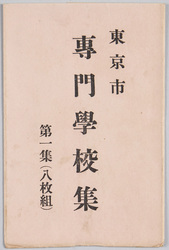 東京市
專門學校集
第一集(八枚組)